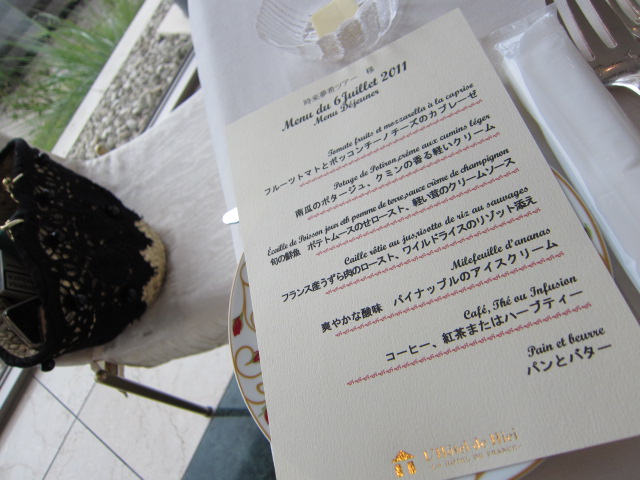 時来夢希ツアー 様
Menu du 6 Juillet 2011
Menu Déjeuner
Tomate fruits et mozzarella à la caprise
フルーツトマトとボッコンチーノチーズのカプレーゼ
Potage de Potiron,crème aux cumins léger
南瓜のポタージュ、クミンの香る軽いクリーム
Éveille de Poisson jour,oti pomme de terre,sauce crème de champignon
旬の鮮魚 ポテトムースのせロースト、軽い茸のクリームソース
Caille rôtie au jus,risotto de riz au sauvages
フランス産うずら肉のロースト、ワイルドライスのリゾット添え
Milefeuille d'ananas
爽やかな酸味 パイナップルのアイスクリーム
Café, Thé ou Infusion
コーヒー、紅茶またはハーブティー
Pain et beurre
パンとバター
L'Hôtel de Hiei